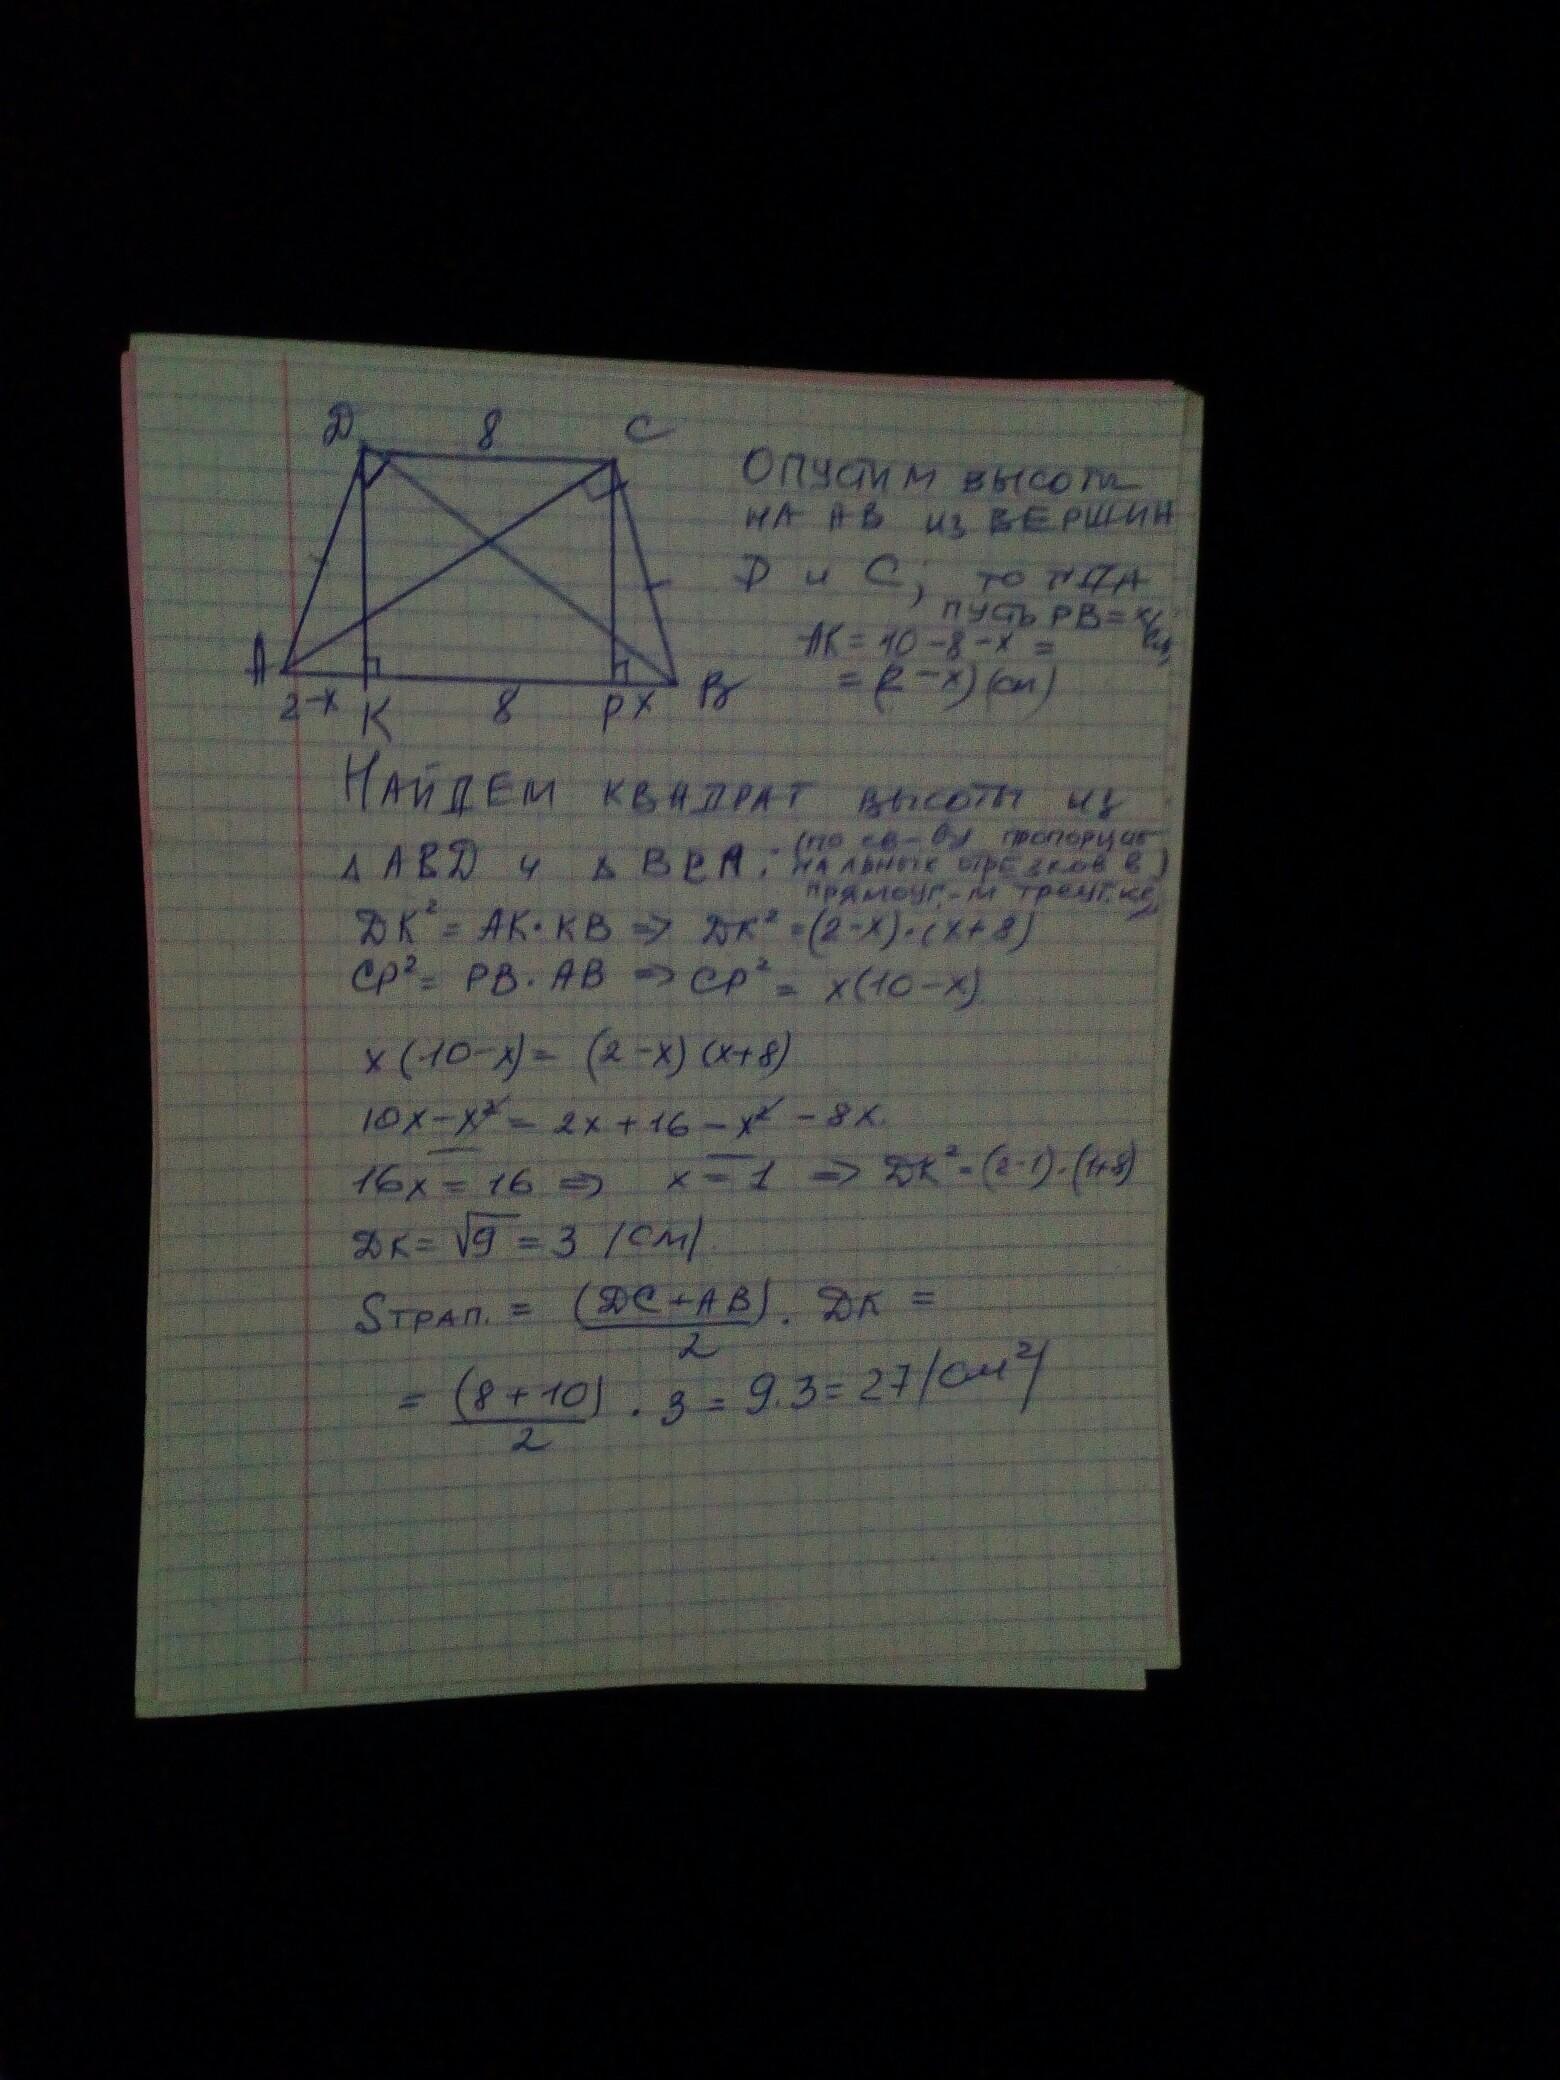 D 8 C
A 2-x K 8 P x B
Опустим высоты
на AB из вершин
D и C, тогда
пусть PB = x
AK = 10 - 8 - x =
= (2 - x) (см)
Найдем квадрат высоты из
Δ ABD и Δ BCA: (по св-ву пропорцио
нальных отрезков в
прямоуг.-м треуг.ке)
DK² = AK · KB ⇒ DK² = (2-x)·(x+8)
CP² = PB · AB ⇒ CP² = x(10-x)
x(10-x) = (2-x)(x+8)
10x - x² = 2x + 16 - x² - 8x
16x = 16 ⇒ x = 1 ⇒ DK² = (2-1)·(1+8)
DK = √9 = 3 (см)
Sтрап. = (DC + AB)/2 · DK =
= (8 + 10)/2 · 3 = 9·3 = 27 (см²)